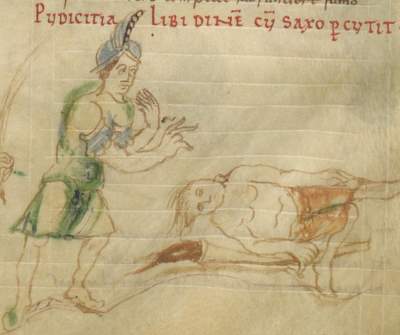 PVDICITIA LIBIDINĒ CV̄ SAXO P̄CVTIT·